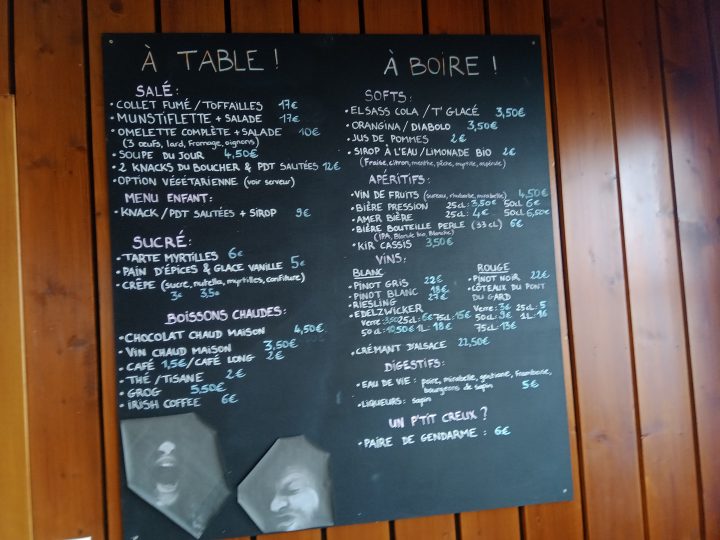 À TABLE !
SALÉ :
• COLLET FUMÉ / TOFFAILLES 17€
• MUNSTIFLETTE + SALADE 17€
• OMELETTE COMPLÈTE + SALADE 10€
(3 œufs, lard, fromage, oignons)
• SOUPE DU JOUR 4,50€
• 2 KNACKS DU BOUCHER & PDT SAUTÉES 12€
• OPTION VÉGÉTARIENNE (voir serveur)
MENU ENFANT :
• KNACK / PDT SAUTÉES + SIROP 9€
SUCRÉ :
• TARTE MYRTILLES 6€
• PAIN D'ÉPICES & GLACE VANILLE 5€
• CRÊPE (sucre, nutella, myrtilles, confiture)
3€ 3,5€
BOISSONS CHAUDES :
• CHOCOLAT CHAUD MAISON 4,50€
• VIN CHAUD MAISON 3,50€
• CAFÉ 1,5€ / CAFÉ LONG 2€
• THÉ / TISANE 2€
• GROG 5,50€
• IRISH COFFEE 6€
À BOIRE !
SOFTS :
• ELSASS COLA / T'GLACÉ 3,50€
• ORANGINA / DIABOLO 3,50€
• JUS DE POMMES 2€
• SIROP À L'EAU / LIMONADE BIO 2€
(Fraise, citron, menthe, pêche, myrtille, aspérule)
APÉRITIFS :
• VIN DE FRUITS (sureau, rhubarbe, mirabelle) 4,50€
• BIÈRE PRESSION 25cl : 3,50€ 50cl : 6€
• AMER BIÈRE 25cl : 4€ 50cl : 6,50€
• BIÈRE BOUTEILLE PERLE (33 cl) 6€
(IPA, Blonde bio, Blanche)
• KIR CASSIS 3,50€
VINS :
BLANC
• PINOT GRIS 22€
• PINOT BLANC 18€
• RIESLING 27€
• EDELZWICKER
Verre : 25cl : 6€ 75cl : 15€
50 cl : 1L : 18€
ROUGE
• PINOT NOIR 22€
• CÔTEAUX DU PONT
DU GARD
Verre : 3€ 25cl : 5
50cl : 9€ 1L : 16
75cl : 13€
• CRÉMANT D'ALSACE 22,50€
DIGESTIFS :
• EAU DE VIE : poire, mirabelle, gentiane, framboise,
bourgeons de sapin 5€
• LIQUEURS : sapin
UN P'TIT CREUX ?
• PAIRE DE GENDARME : 6€